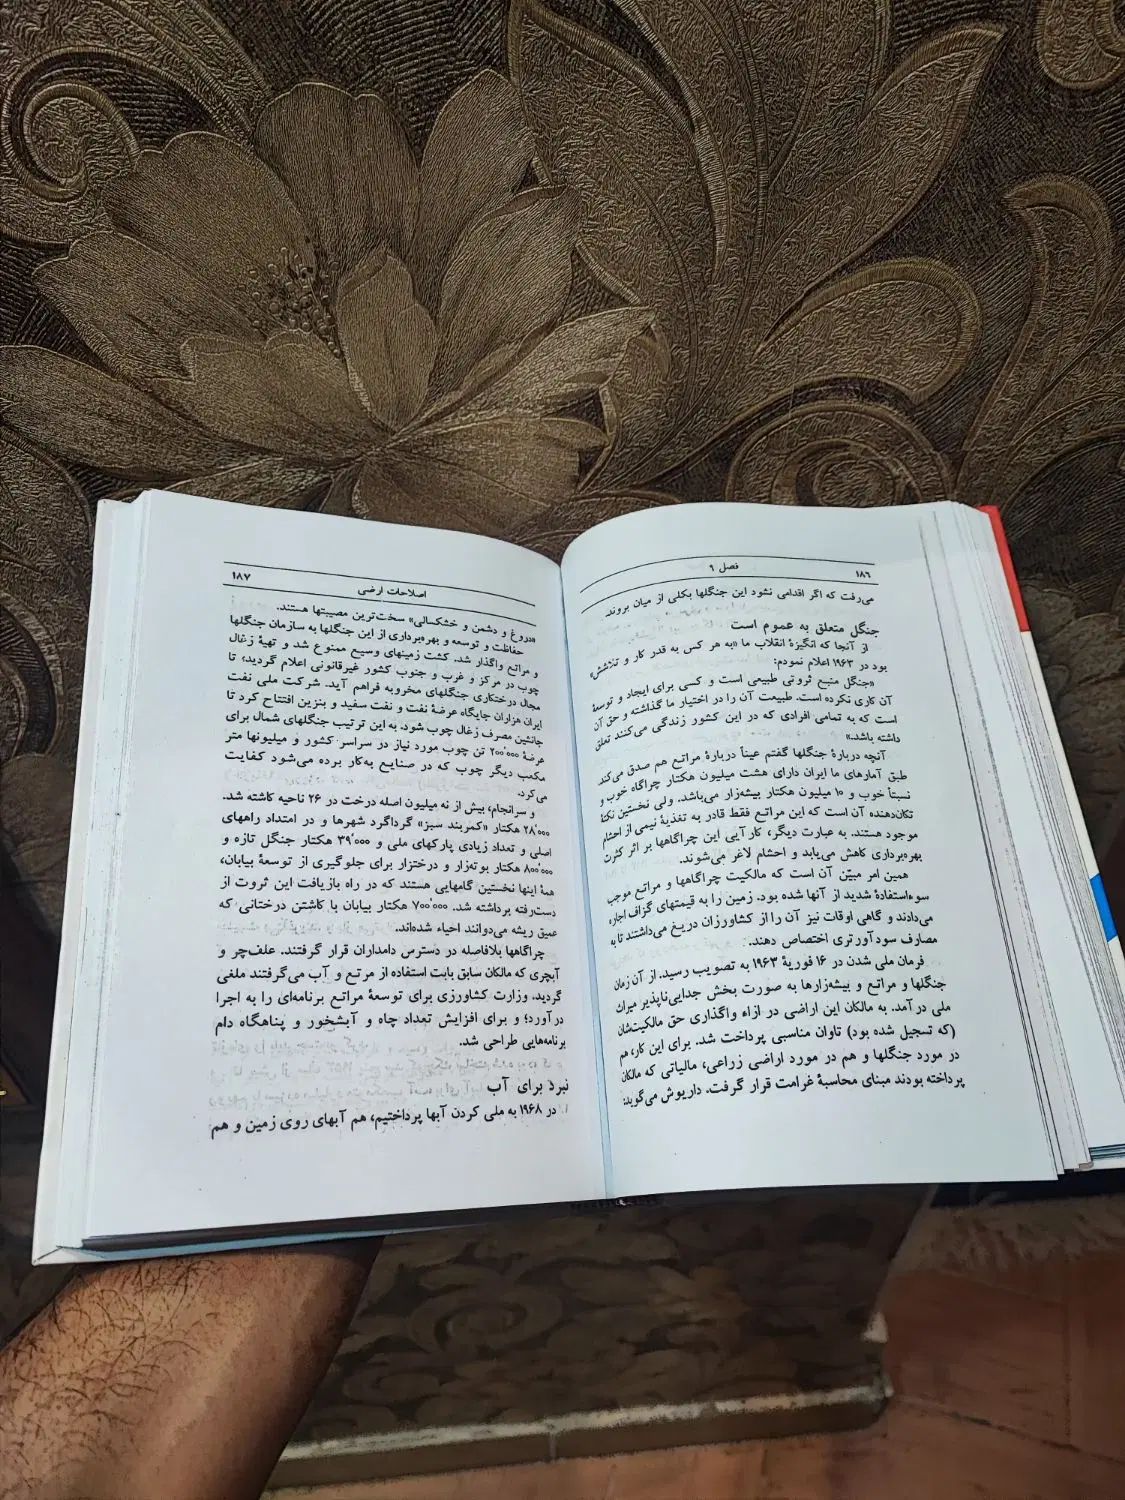 ۱۸۶
فصل ۹
می‌رفت که اگر اقدامی نشود این جنگلها بکلی از میان بروند.
جنگل متعلق به عموم است
از آنجا که انگیزهٔ انقلاب ما «به هر کس به قدر کار و تلاشش»
بود در ۱۹۶۳ اعلام نمودم:
«جنگل منبع ثروتی طبیعی است و کسی برای ایجاد و توسعهٔ
آن کاری نکرده است. طبیعت آن را در اختیار ما گذاشته و حق آن
است که به تمامی افرادی که در این کشور زندگی می‌کنند تعلق
داشته باشد.»
آنچه دربارهٔ جنگلها گفتم عیناً دربارهٔ مراتع هم صدق می‌کند.
طبق آمارهای ما ایران دارای هشت میلیون هکتار چراگاه خوب و
نسبتاً خوب و ۱۰ میلیون هکتار بیشه‌زار می‌باشد. ولی نخستین نکتهٔ
تکان‌دهنده آن است که این مراتع فقط قادر به تغذیهٔ نیمی از احشام
موجود هستند. به عبارت دیگر، کارآیی این چراگاهها بر اثر کثرت
بهره‌برداری کاهش می‌یابد و احشام لاغر می‌شوند.
همین امر مبیّن آن است که مالکیت چراگاهها و مراتع موجب
سوءاستفادهٔ شدید از آنها شده بود. زمین را به قیمتهای گزاف اجاره
می‌دادند و گاهی اوقات نیز آن را از کشاورزان دریغ می‌داشتند تا به
مصارف سودآورتری اختصاص دهند.
فرمان ملی شدن در ۱۶ فوریهٔ ۱۹۶۳ به تصویب رسید. از آن زمان
جنگلها و مراتع و بیشه‌زارها به صورت بخش جدایی‌ناپذیر میراث
ملی در آمد. به مالکان این اراضی در ازاء واگذاری حق مالکیت‌شان
(که تسجیل شده بود) تاوان مناسبی پرداخت شد. برای این کار، هم
در مورد جنگلها و هم در مورد اراضی زراعی، مالیاتی که مالکان
پرداخته بودند مبنای محاسبهٔ غرامت قرار گرفت. داریوش می‌گوید:
اصلاحات ارضی
۱۸۷
«دروغ و دشمن و خشکسالی» سخت‌ترین مصیبتها هستند.
حفاظت و توسعه و بهره‌برداری از این جنگلها به سازمان جنگلها
و مراتع واگذار شد. کشت زمینهای وسیع ممنوع شد و تهیهٔ زغال
چوب در مرکز و غرب و جنوب کشور غیرقانونی اعلام گردید؛ تا
مجال درختکاری جنگلهای مخروبه فراهم آید. شرکت ملی نفت
ایران هزاران جایگاه عرضهٔ نفت و نفت سفید و بنزین افتتاح کرد تا
جانشین مصرف زغال چوب شود. به این ترتیب جنگلهای شمال برای
عرضهٔ ۲۰۰٬۰۰۰ تن چوب مورد نیاز در سراسر کشور و میلیونها متر
مکعب دیگر چوب که در صنایع به‌کار برده می‌شود کفایت
می‌کرد.
و سرانجام، بیش از نه میلیون اصله درخت در ۲۶ ناحیه کاشته شد.
۲۸٬۰۰۰ هکتار «کمربند سبز» گرداگرد شهرها و در امتداد راههای
اصلی و تعداد زیادی پارکهای ملی و ۳۹٬۰۰۰ هکتار جنگل تازه و
۸۰۰٬۰۰۰ هکتار بوته‌زار و درختزار برای جلوگیری از توسعهٔ بیابان،
همهٔ اینها نخستین گامهایی هستند که در راه بازیافت این ثروت از
دست‌رفته برداشته شد. ۷۰۰٬۰۰۰ هکتار بیابان با کاشتن درختانی که
عمیق ریشه می‌دوانند احیاء شده‌اند.
چراگاهها بلافاصله در دسترس دامداران قرار گرفتند. علف‌چر و
آبچری که مالکان سابق بابت استفاده از مرتع و آب می‌گرفتند ملغی
گردید. وزارت کشاورزی برای توسعهٔ مراتع برنامه‌ای را به اجرا
درآورد؛ و برای افزایش تعداد چاه و آبشخور و پناهگاه دام
برنامه‌هایی طراحی شد.
نبرد برای آب
در ۱۹۶۸ به ملی کردن آبها پرداختیم، هم آبهای روی زمین و هم